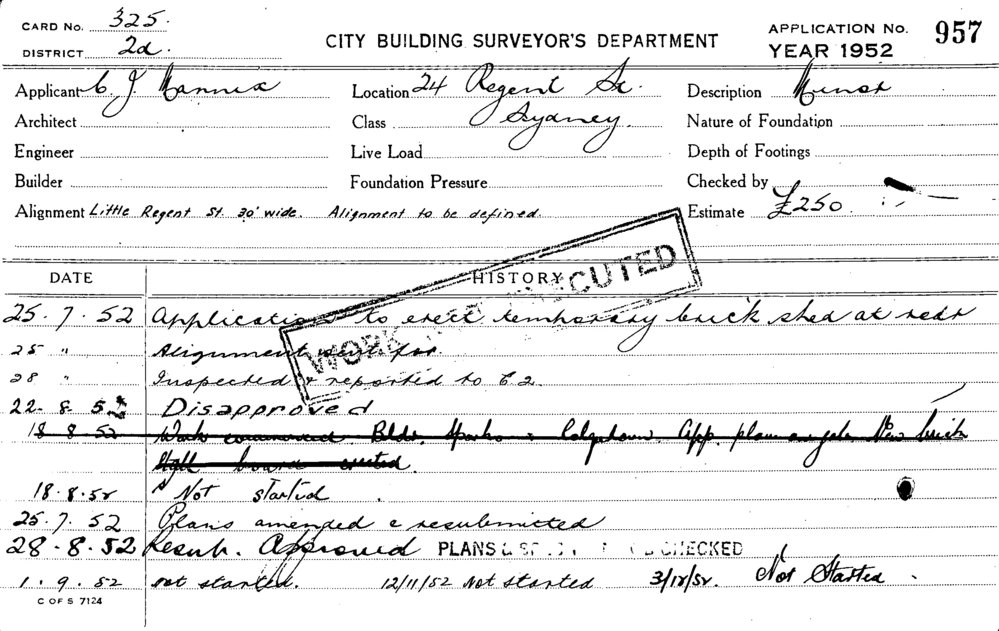 CARD No. 325.
DISTRICT 2d.
CITY BUILDING SURVEYOR'S DEPARTMENT
APPLICATION No. 957
YEAR 1952
Applicant C J Mannix
Location 24 Regent St.
Description Minor
Architect
Class Sydney.
Nature of Foundation
Engineer
Live Load
Depth of Footings
Builder
Foundation Pressure
Checked by
Alignment Little Regent St. 20' wide. Alignment to be defined.
Estimate £250
DATE HISTORY
WORK EXECUTED
25. 7. 52 Application to erect temporary brick shed at rear
25 " Alignment sent for
28 " Inspected & reported to C2.
22. 8. 52 Disapproved
18 8. 52 Work commenced Bldr. app. plan on job New brick
board erected.
18. 8. 52 Not started.
25. 7. 52 Plans amended & resubmitted
28. 8. 52 Resub. Approved PLANS & CHECKED
1. 9. 52 not started. 12/11/52 Not started 3/12/52. Not Started.
C OF S 7124